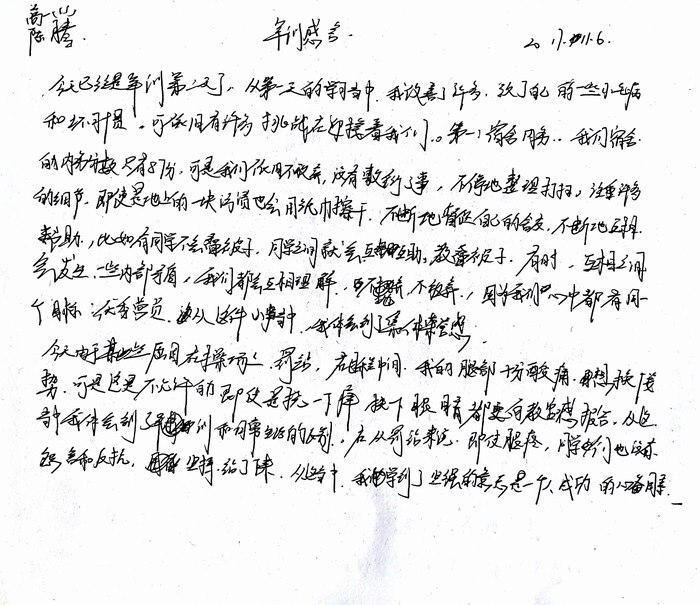 高一（八）
陈腾
军训感言
2017.11.6.
今天已经是军训第二天了，从第一天的学习当中，我改善了许多，纠了自己的一些小毛病
和坏习惯。可依旧有许多挑战在迎接着我们。第一，宿舍内务。我们宿舍
的内务分数只有87分，可是我们依旧不放弃，没有敷衍了事，不停地整理打扫，注重许多
的细节，即使是地上的一块污渍也会用纸巾擦干，不断地督促自己的舍友，不断地互相
帮助，比如有同学不会叠被子，同学之间就会互帮互助，教叠被子。有时，互相之间
会发生一些内部矛盾，我们都会互相理解，不放弃，因为我们心中都有同一
个目标：优秀营员，从这件小事中，我体会到了集体荣誉感
今天由于某些原因在操场上罚站，在罚站中间，我的腿部十分酸痛，想换
势，可是这是不允许的，即使是抚一下裤，按下眼睛都要向教官报告，从这
当中我体会到了军训和日常生活的区别，在从罚站来说，即使腿疼，同学们也没有
怨言和反抗，坚持站了下来，从当中，我学到了坚强的意志是一个人成功的必备因素